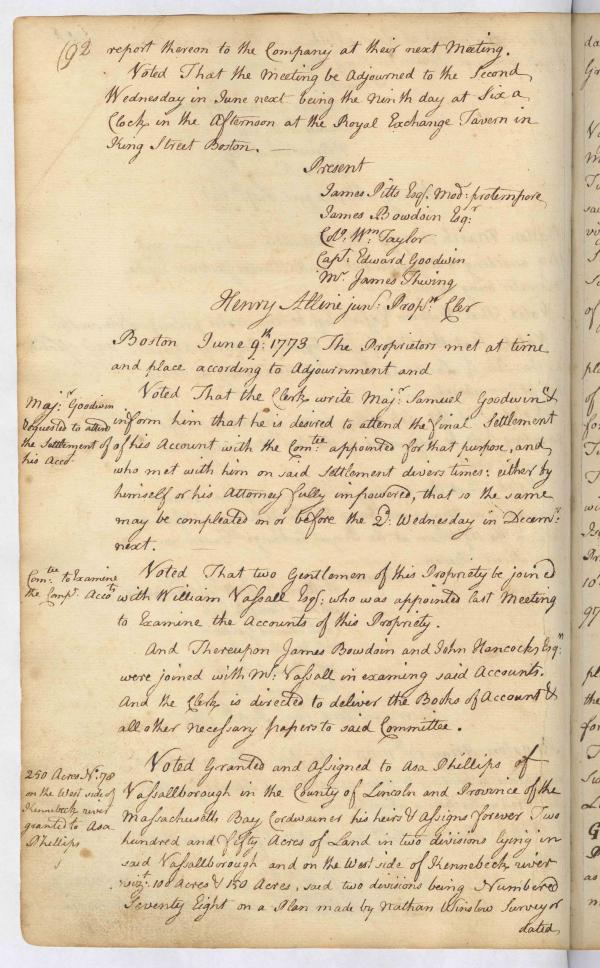 192 report thereon to the Company at their next Meeting.
Voted That the Meeting be Adjourned to the Second
Wednesday in June next being the Ninth day at Six a
Clock in the Afternoon at the Royal Exchange Tavern in
King Street Boston. —
Present
James Pitts Esqr. Modr: protempore
James Bowdoin Esqr:
Colo. Wm: Taylor
Capt: Edward Goodwin
Mr. James Thwing
Henry Alline junr: Proprs Cler
Boston June 9th: 1773 The Proprietors met at time
and place according to Adjournment and
Majr: Goodwin
requested to attend
the Settlement of
his Acco:
Voted That the Clerk write Majr: Samuel Goodwin &
inform him that he is desired to attend the final Settlement
of his Account with the Comtee: appointed for that purpose, and
who met with him on said Settlement divers times: either by
himself or his Attorney fully impowered, that so the same
may be compleated on or before the 2d: Wednesday in Decemr:
next.
Comtee: to Examine
the Compy. Accots
Voted That two Gentlemen of this Propriety be joined
with William Vassall Esqr: who was appointed last Meeting
to Examine the Accounts of this Propriety.
And Thereupon James Bowdoin and John Hancock Esqrs:
were joined with Mr. Vassall in examing said Accounts.
And the Clerk is directed to deliver the Books of Account &
all other necessary papers to said Committee.
250 Acres No. 78
on the West side of
Kennebeck river
granted to Asa
Phillips
Voted Granted and Assigned to Asa Phillips of
Vassallborough in the County of Lincoln and Province of the
Massachusetts Bay Cordwainer his heirs & Assigns forever Two
hundred and fifty Acres of Land in two divisions lying in
said Vassallborough and on the West side of Kennebeck river
vizt. 100 Acres & 150 Acres, said two divisions being Numbered
Seventy Eight on a Plan made by Nathan Winslow Surveyor
dated